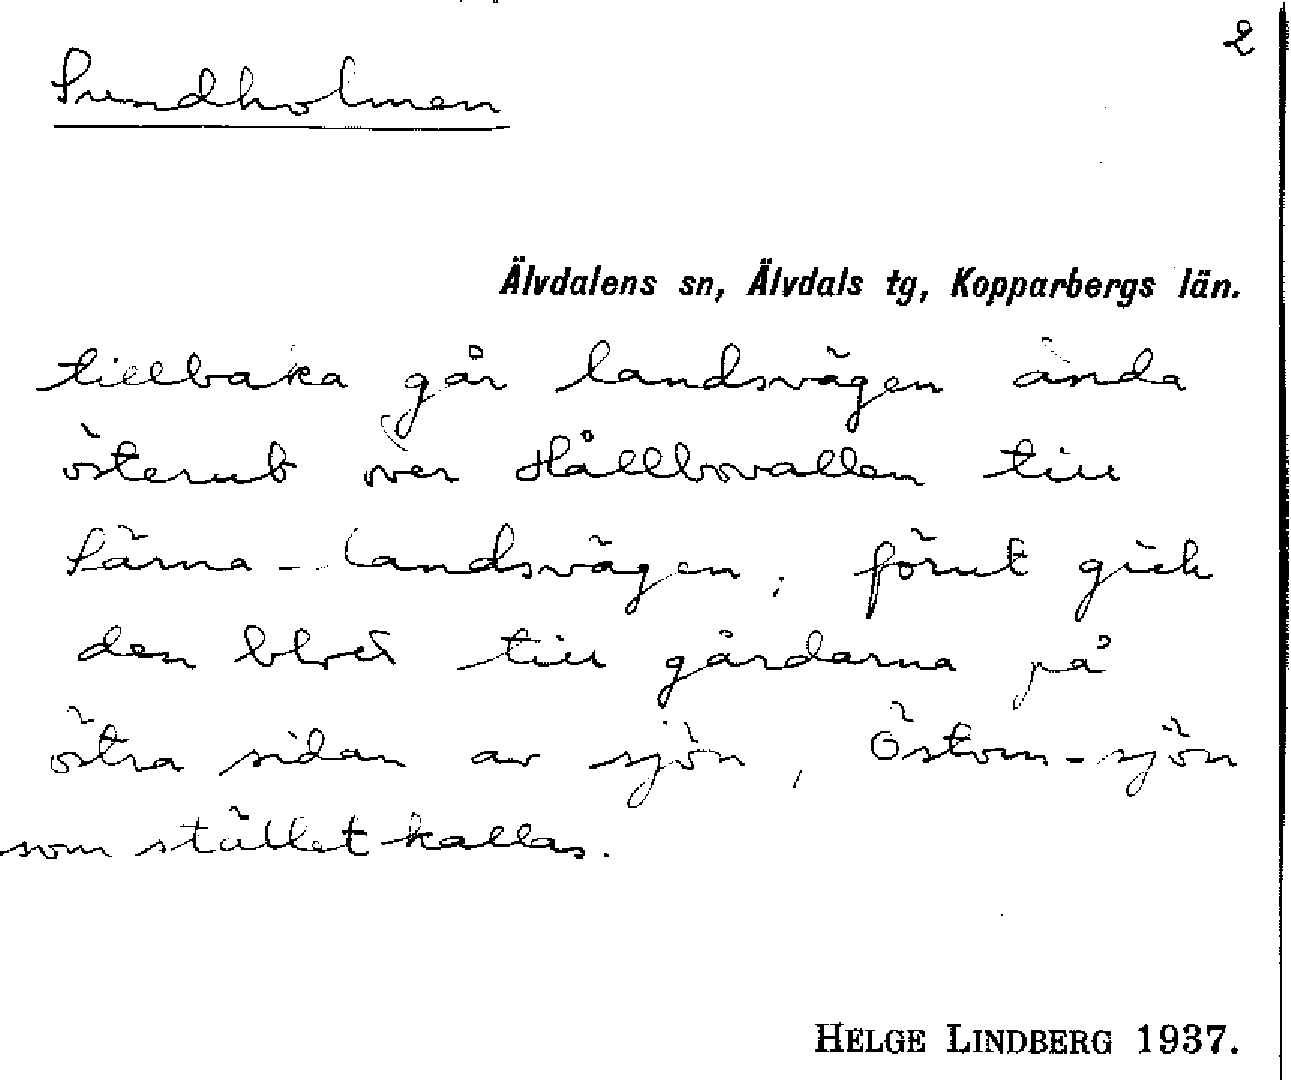 2
Sundholmen
Älvdalens sn, Älvdals tg, Kopparbergs län.
tillbaka går landsvägen ända
österut över Hållbovallen till
Särna-landsvägen; förut gick
den blott till gårdarna på
östra sidan av sjön, Östom-sjön
som stället kallas.
HELGE LINDBERG 1937.